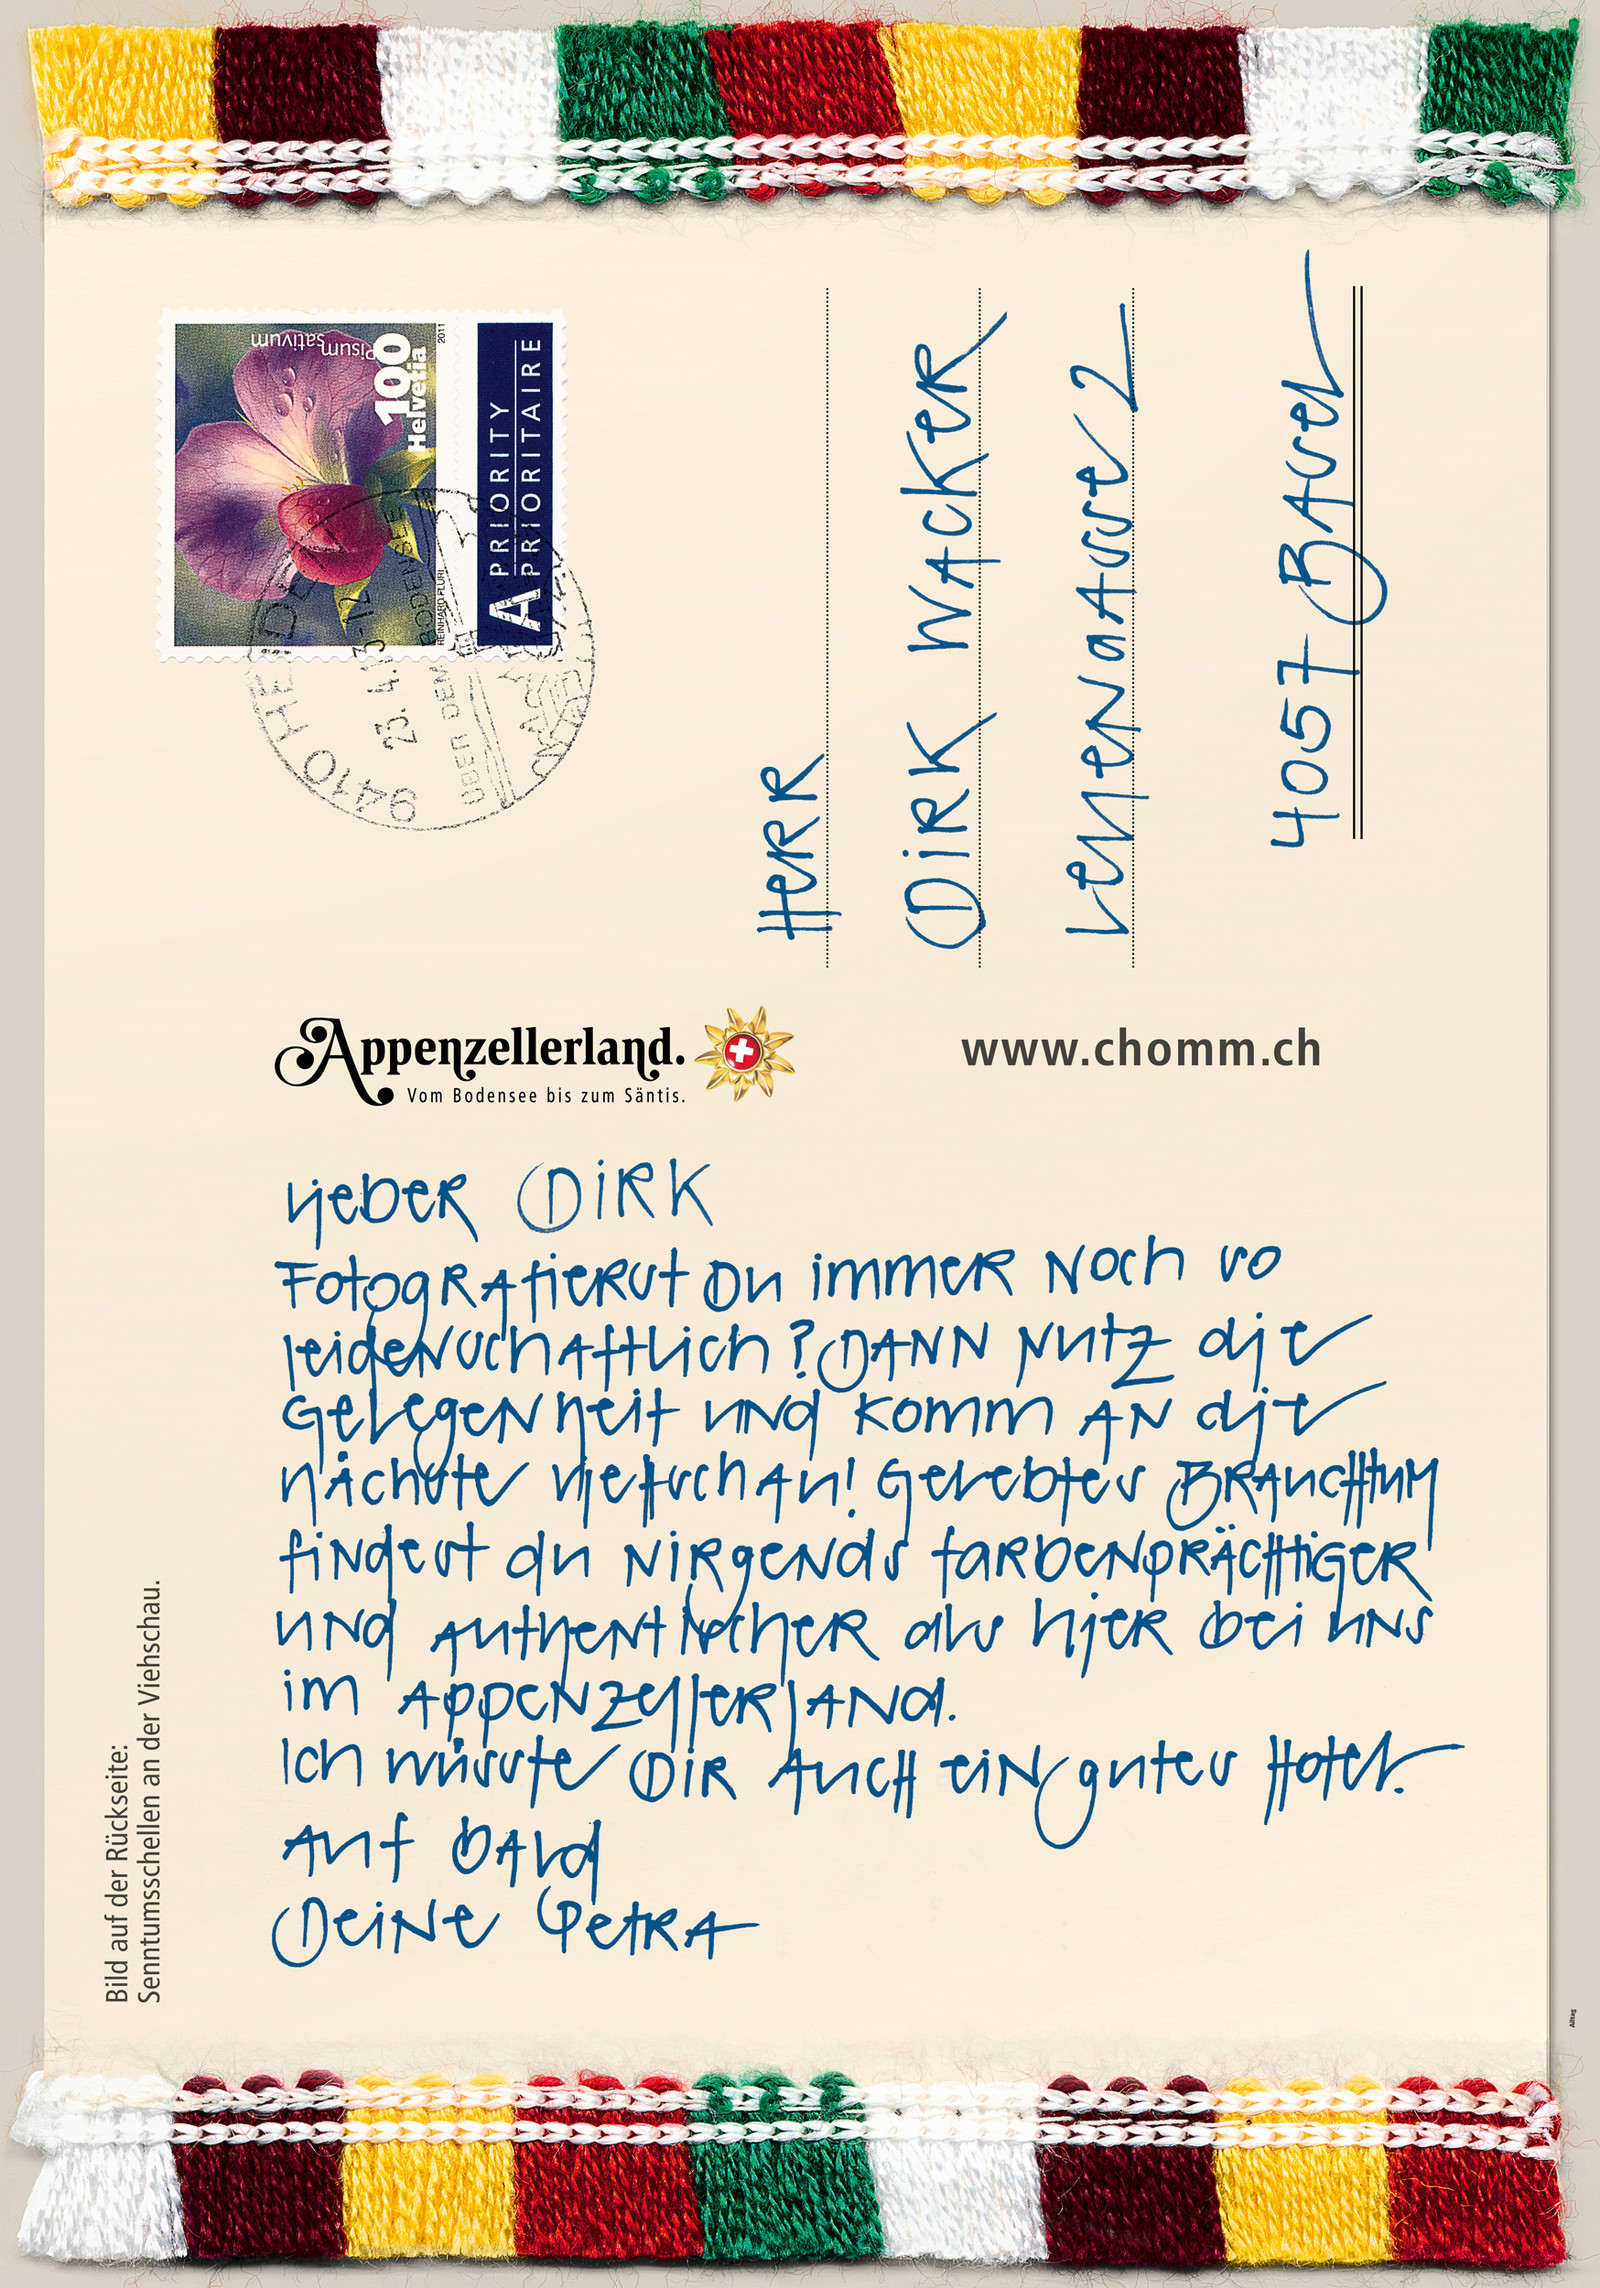 Pisum
sativum
100
Helvetia
2011
REINHARD FLURI
A PRIORITY
PRIORITAIRE
9410 HEIDEN
23. 4. 13-12
ÜBER DEM BODENSEE
Herr
Dirk Wacker
4057 Basel
Appenzellerland.
Vom Bodensee bis zum Säntis.
www.chomm.ch
Lieber Dirk
Fotografierst Du immer noch so
leidenschaftlich? Dann nutz die
Gelegenheit und komm an die
nächste Viehschau! Gelebtes Brauchtum
findest du nirgends farbenprächtiger
und authentischer als hier bei uns
im Appenzellerland.
Ich wüsste Dir auch ein gutes Hotel.
Auf bald
Deine Petra
Bild auf der Rückseite:
Senntumsschellen an der Viehschau.
Alltag